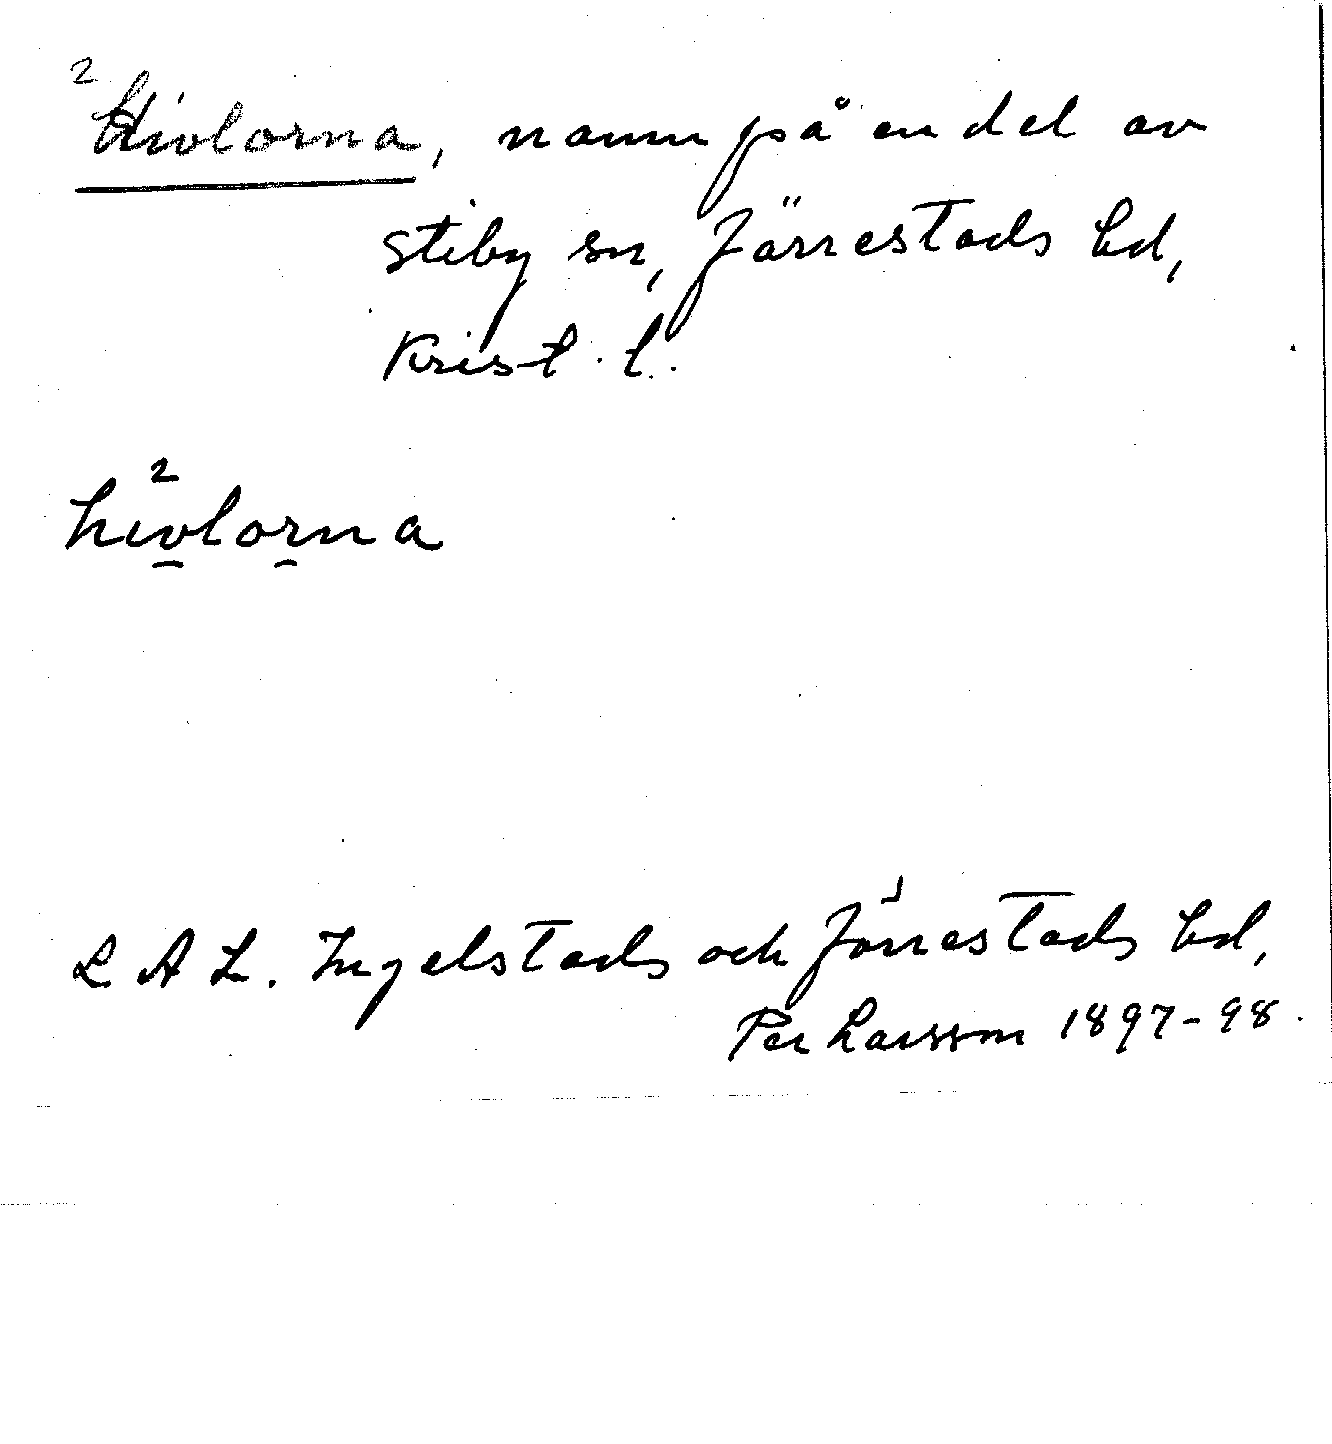 ² Hivlorna, namn på en del av
Stiby sn, Järrestads hd,
Krist. l.
hi²vlorna
LAL. Ingelstads och Järrestads hd,
Per Larsson 1897-98.